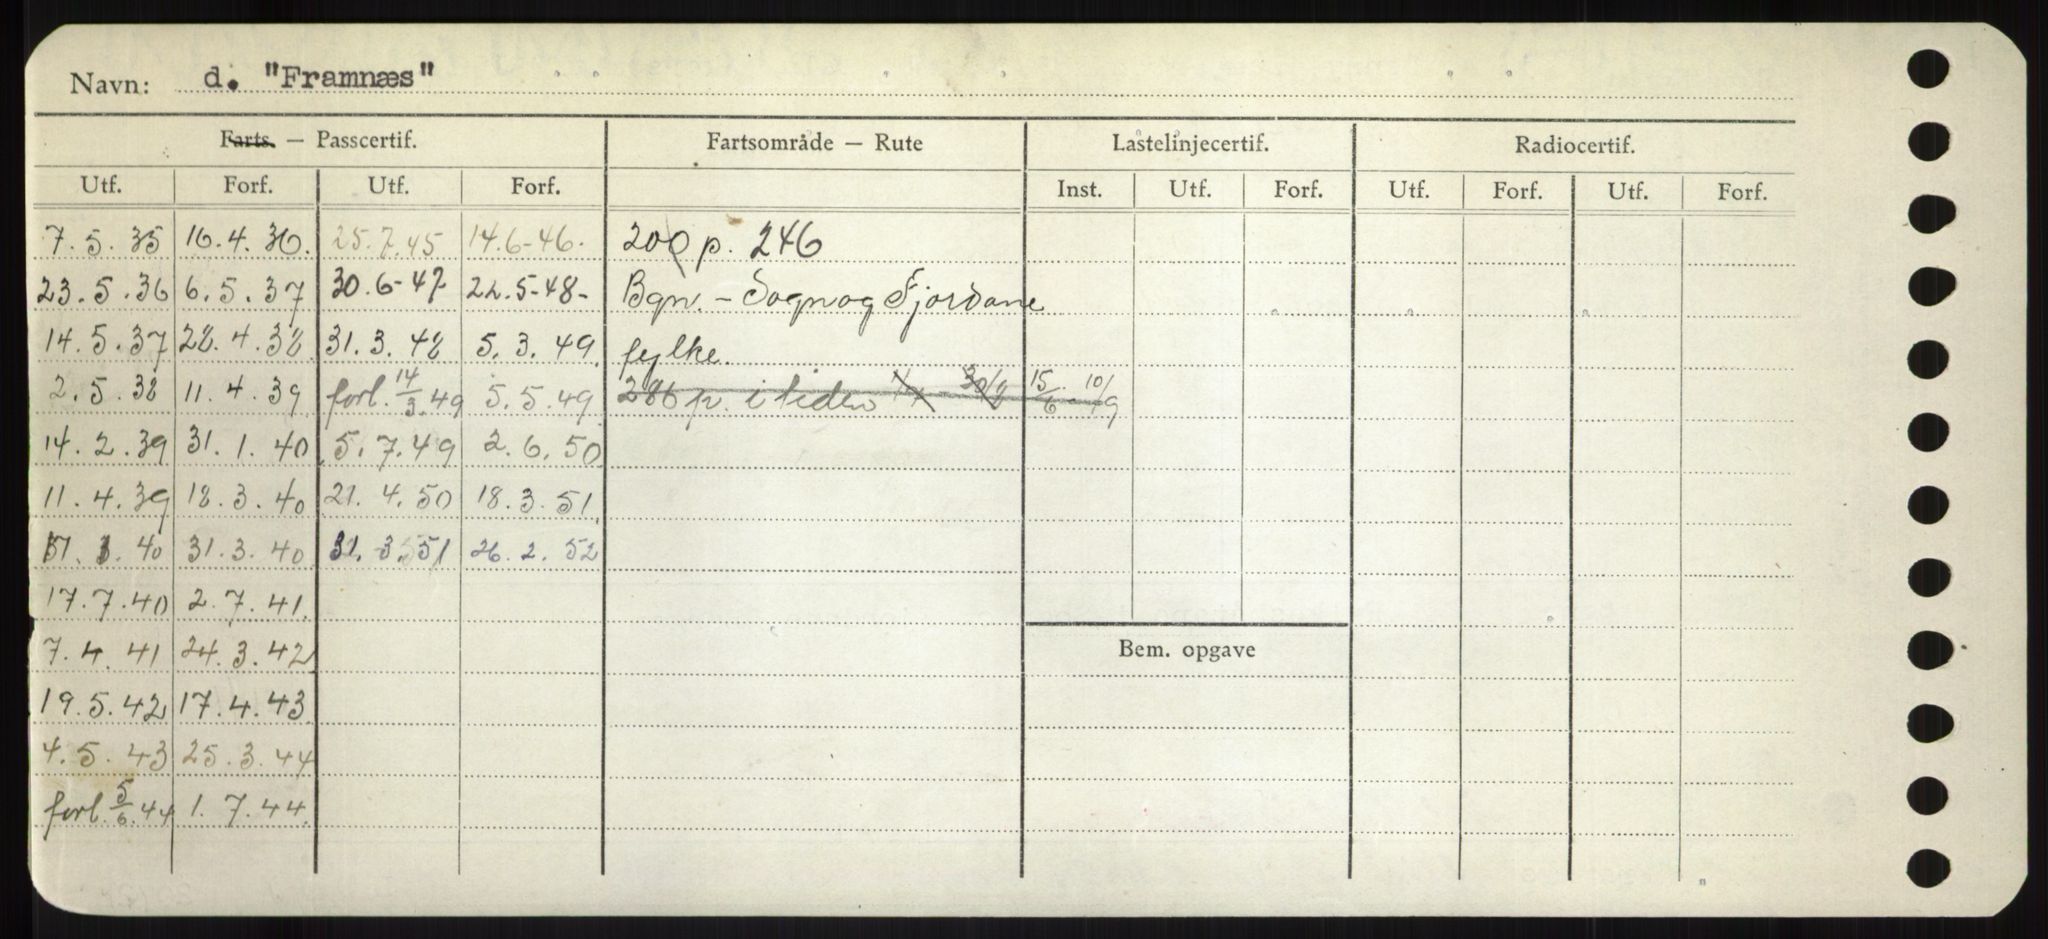 Navn: d. "Framnæs"
Farts. — Passcertif. Fartsområde — Rute Lastelinjecertif. Radiocertif.
Utf. Forf. Utf. Forf. Inst. Utf. Forf. Utf. Forf. Utf. Forf.
7.5.35 16.4.36. 25.7.45 14.6-46. 200 p. 246
23.5.36 6.5.37 30.6-47 22.5-48- Bgn. - Sogn og Fjordane
14.5.37 28.4.38 31.3.48 5.3.49 fylke.
2.5.38 11.4.39 forl. 14/3.49 5.5.49 286 p. i tiden 30/8 15/6 - 10/9
14.2.39 31.1.40 5.7.49 2.6.50
11.4.39 18.3.40 21.4.50 18.3.51
40 31.3.40 31.3.51 26.2.52
17.7.40 2.7.41
7.4.41 24.3.42
Bem. opgave
19.5.42 17.4.43
4.5.43 25.3.44
forl. 5/6.44 1.7.44